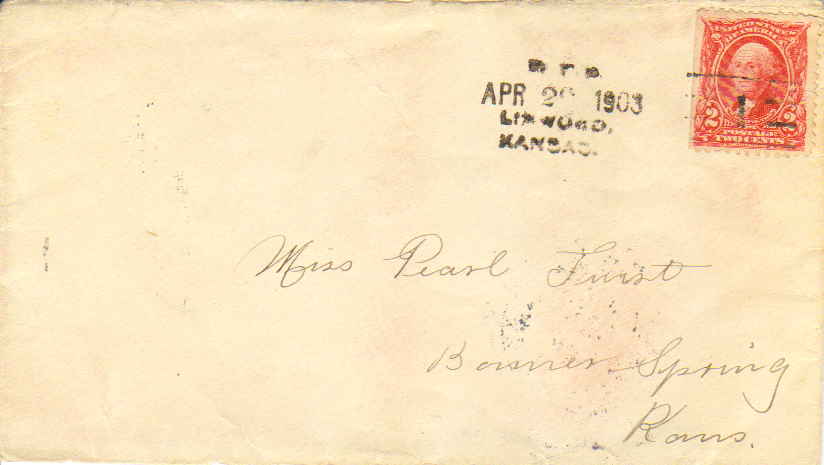 R.F.D.
APR 29 1903
LINWOOD,
KANSAS.
UNITED STATES
OF AMERICA
2 2
POSTAGE
TWO CENTS
Miss Pearl Furst
Bonner Spring
Kans.